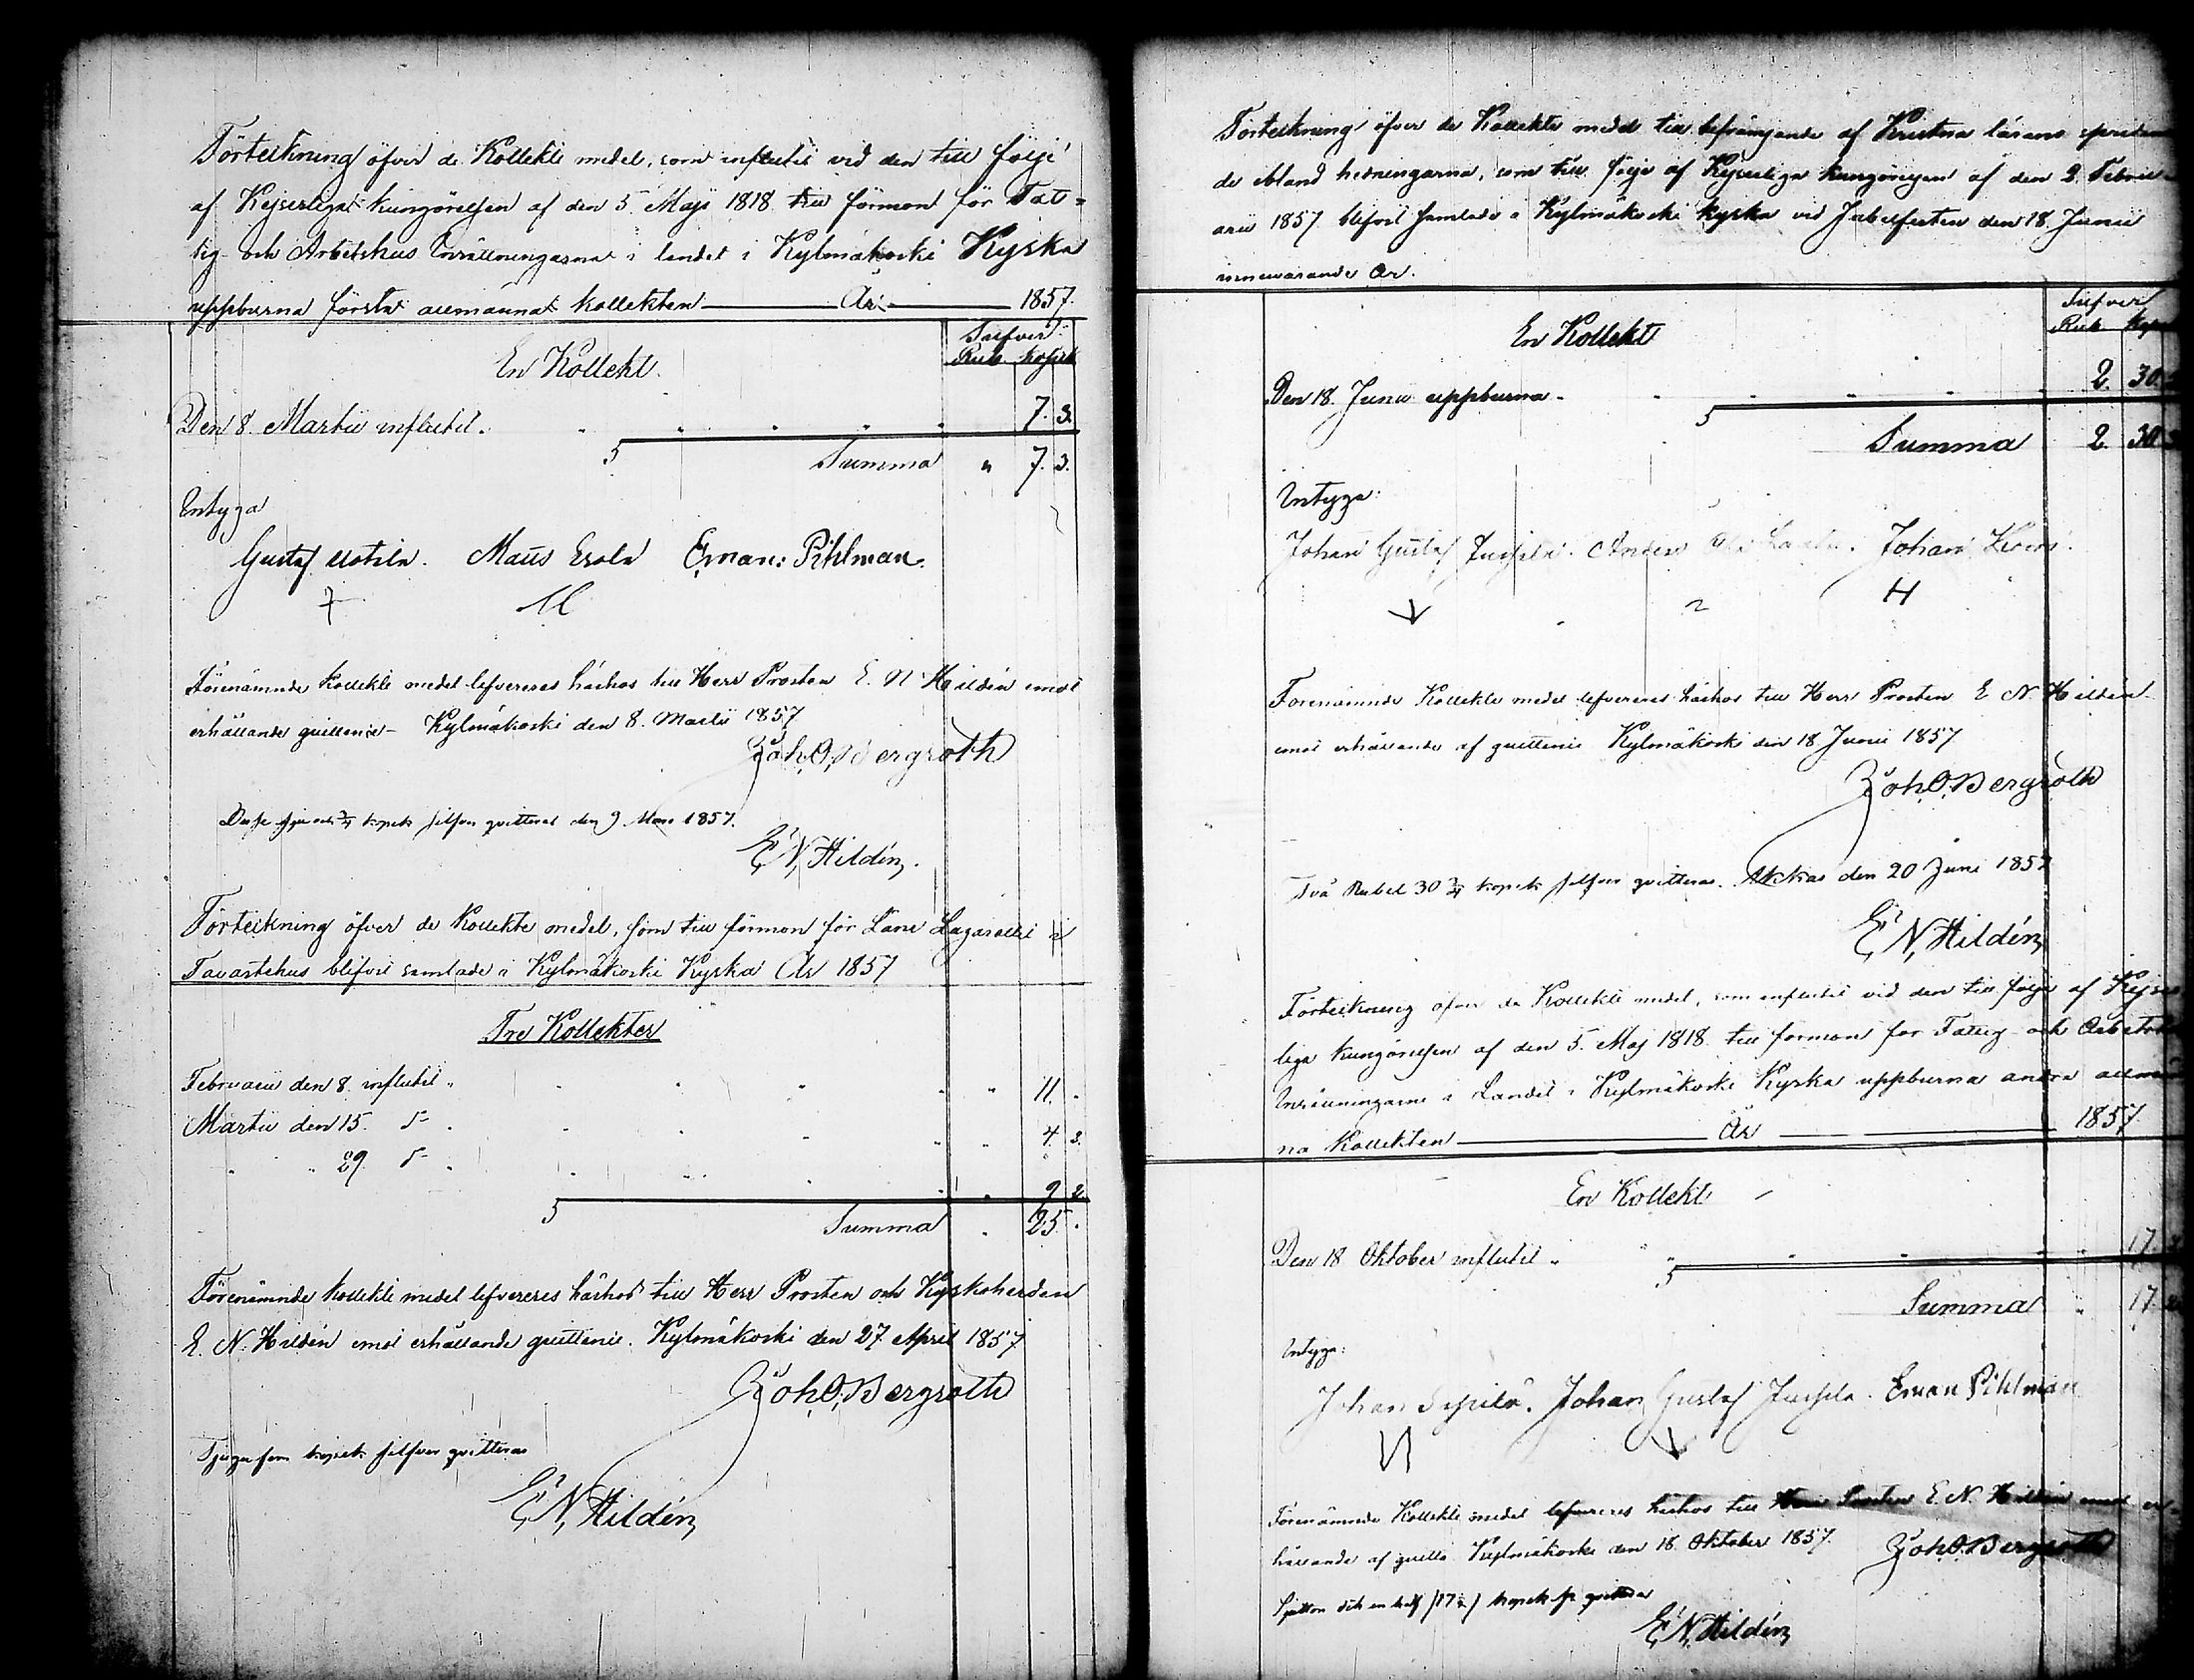 Förteckning öfver de Kollekte medel, som influtit vid den till följe
af Kejserliga kungörelsen af den 5 Maji 1818 till förmon för Fat-
tig- och Arbetshus Inrättningarna i landet i Kylmäkoski Kyrka
uppburna första allmänna kollekten — År — 1857.
Silfver
Rub. kopek
En Kollekt.
Den 8 Martii influtit. 7. 3.
Summa " 7. 3.
Intyga
Gustaf Uotila. Matts Erola Eman: Pihlman.
Förenämnde kollekte medel lefvereras härhos till Herr Prosten E. N. Hildén emot
erhållande quittence - Kylmäkoski den 8. Martii 1857
Joh. O. Bergroth
Desse sju och 3/4 kopek silfver qvitteras den 9 Mars 1857.
E. N. Hildén.
Förteckning öfver de Kollekte medel, som till förmon för Läne Lazarettet i
Tavastehus blifvit samlade i Kylmäkoski Kyrka År 1857
Tre Kollekter
Februarii den 8. influtit " " 11. "
Martii den 15. d:o " 4 3.
" " 29. d:o " 9 2.
Summa " 25 "
Förenämnde kollekte medel lefvereres härhos till Herr Prosten och Kyrkoherden
E. N. Hildén emot erhållande quittence. Kylmäkoski den 27 April 1857
Joh. O. Bergroth
Tjugufem kopek silfver qvitteras
E. N. Hildén
Förteckning öfver de Kollekte medel till befrämjande af Kristna lärans
de ibland hedningarna, som till följe af Kejserliga kungörelsen af den 2 Febru-
arii 1857 blifvit samlade i Kylmäkoski kyrka vid Jubelfesten den 18. Junii
innevarande År.
Silfver
Rub. Kop
En Kollekt
Den 18. Junii uppburna - 2. 30.
Summa 2. 30
Intyga:
Johan Gustaf Anders Johan
H
Förenämnde Kollekte medel lefvereres härhos till Herr Prosten E. N. Hildén
emot erhållande af quittence Kylmäkoski den 18 Junii 1857
Joh. O. Bergroth
Två Rubel 30 3/4 kopek silfver qvitteras. Akkas den 20 Juni 1857
E. N. Hildén
Förteckning öfver de Kollekte medel, som influtit vid den till följe af Kejser
liga kungörelsen af den 5. Maj 1818 till förmon för Fattig- och Arbets
Inrättningarne i Landet i Kylmäkoski Kyrka uppburna andra allmän
na Kollekten — År — 1857
En Kollekt
Den 18 Oktober influtit " " 17.
Summa " 17.
Intyga:
Johan Seppilä. Johan Gustaf Eman Pihlman
Förenämnde Kollekte medel lefvereres härhos till Herr Prosten E. N. Hildén emot er-
hållande af quitto Kylmäkoski den 18 Oktober 1857. Joh. O. Bergroth
Sjutton och en half (17½) kopek sr qvitteras
E. N. Hildén